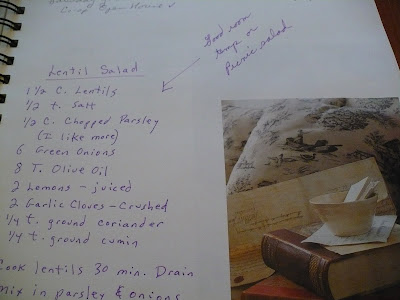 Good room
temp or
Picnic salad
Lentil Salad
1 1/2 C. Lentils
1/2 t. Salt
1/2 C. Chopped Parsley
(I like more)
6 Green Onions
8 T. Olive Oil
2 Lemons - juiced
2 Garlic Cloves - Crushed
1/4 t. ground coriander
1/4 t. ground cumin
Cook lentils 30 min. Drain
Mix in parsley & onions